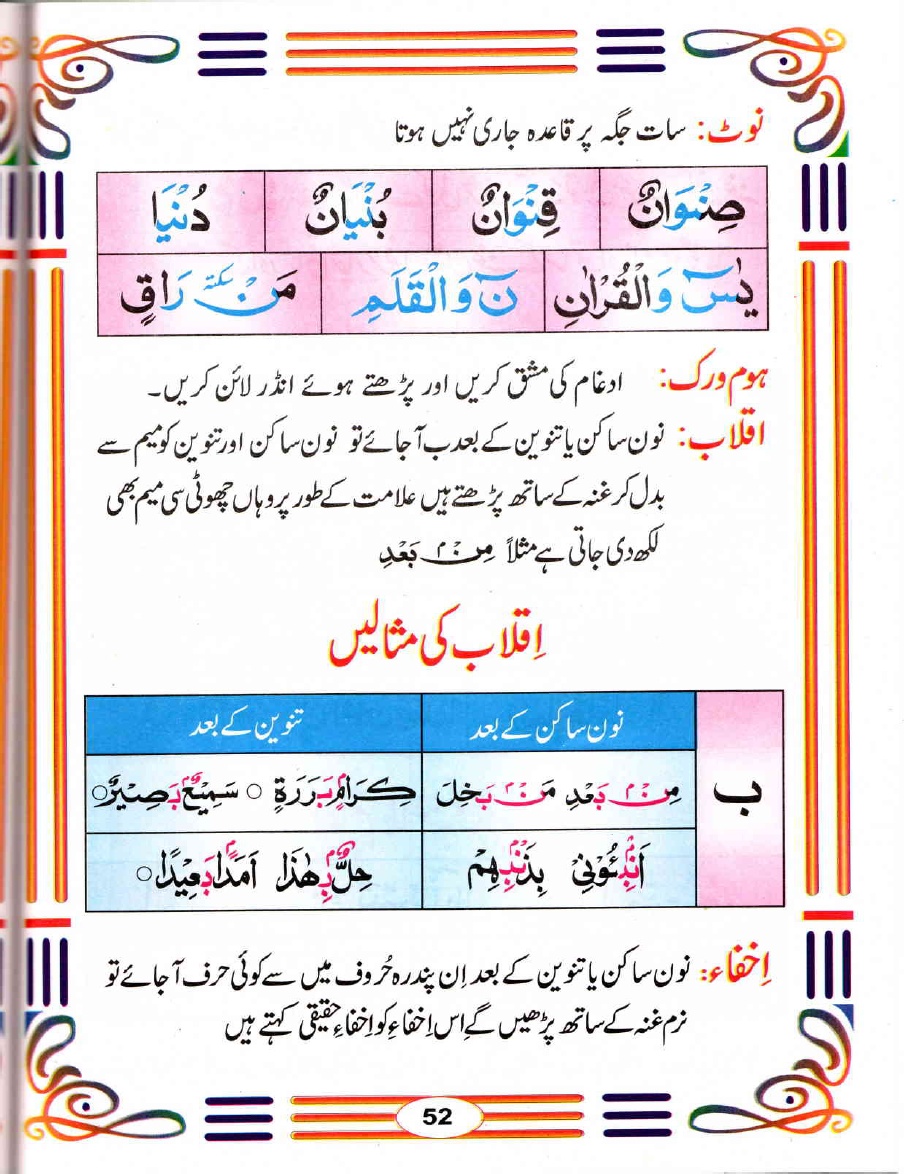 نوٹ: سات جگہ پر قاعدہ جاری نہیں ہوتا
صِنْوَانٌ قِنْوَانٌ بُنْيَانٌ دُنْيَا
يٰسٓ وَالْقُرْاٰنِ نٓ وَالْقَلَمِ مَنْ سكتة رَاقٍ
ہوم ورک: ادغام کی مشق کریں اور پڑھتے ہوئے انڈر لائن کریں۔
اقلاب: نون ساکن یا تنوین کے بعد ب آجائے تو نون ساکن اور تنوین کو میم سے
بدل کر غنہ کے ساتھ پڑھتے ہیں علامت کے طور پر وہاں چھوٹی سی میم بھی
لکھ دی جاتی ہے مثلاً مِنْۢ بَعْدِ
اِقلاب کی مثالیں
نون ساکن کے بعد تنوین کے بعد
ب مِنْۢ بَعْدِ مَنْۢ بَخِلَ كِرَامٍۭ بَرَرَةٍ ○ سَمِيْعٌۢ بَصِيْرٌ○
اَنْۢبِـُٔوْنِيْ بِذَنْۢبِهِمْ حِلٌّۢ بِهٰذَا اَمَدًۢا بَعِيْدًا○
اِخفاء: نون ساکن یا تنوین کے بعد اِن پندرہ حُروف میں سے کوئی حرف آجائے تو
نرم غنہ کے ساتھ پڑھیں گے اِس اِخفاءِ کو اِخفاءِ حقیقی کہتے ہیں
52